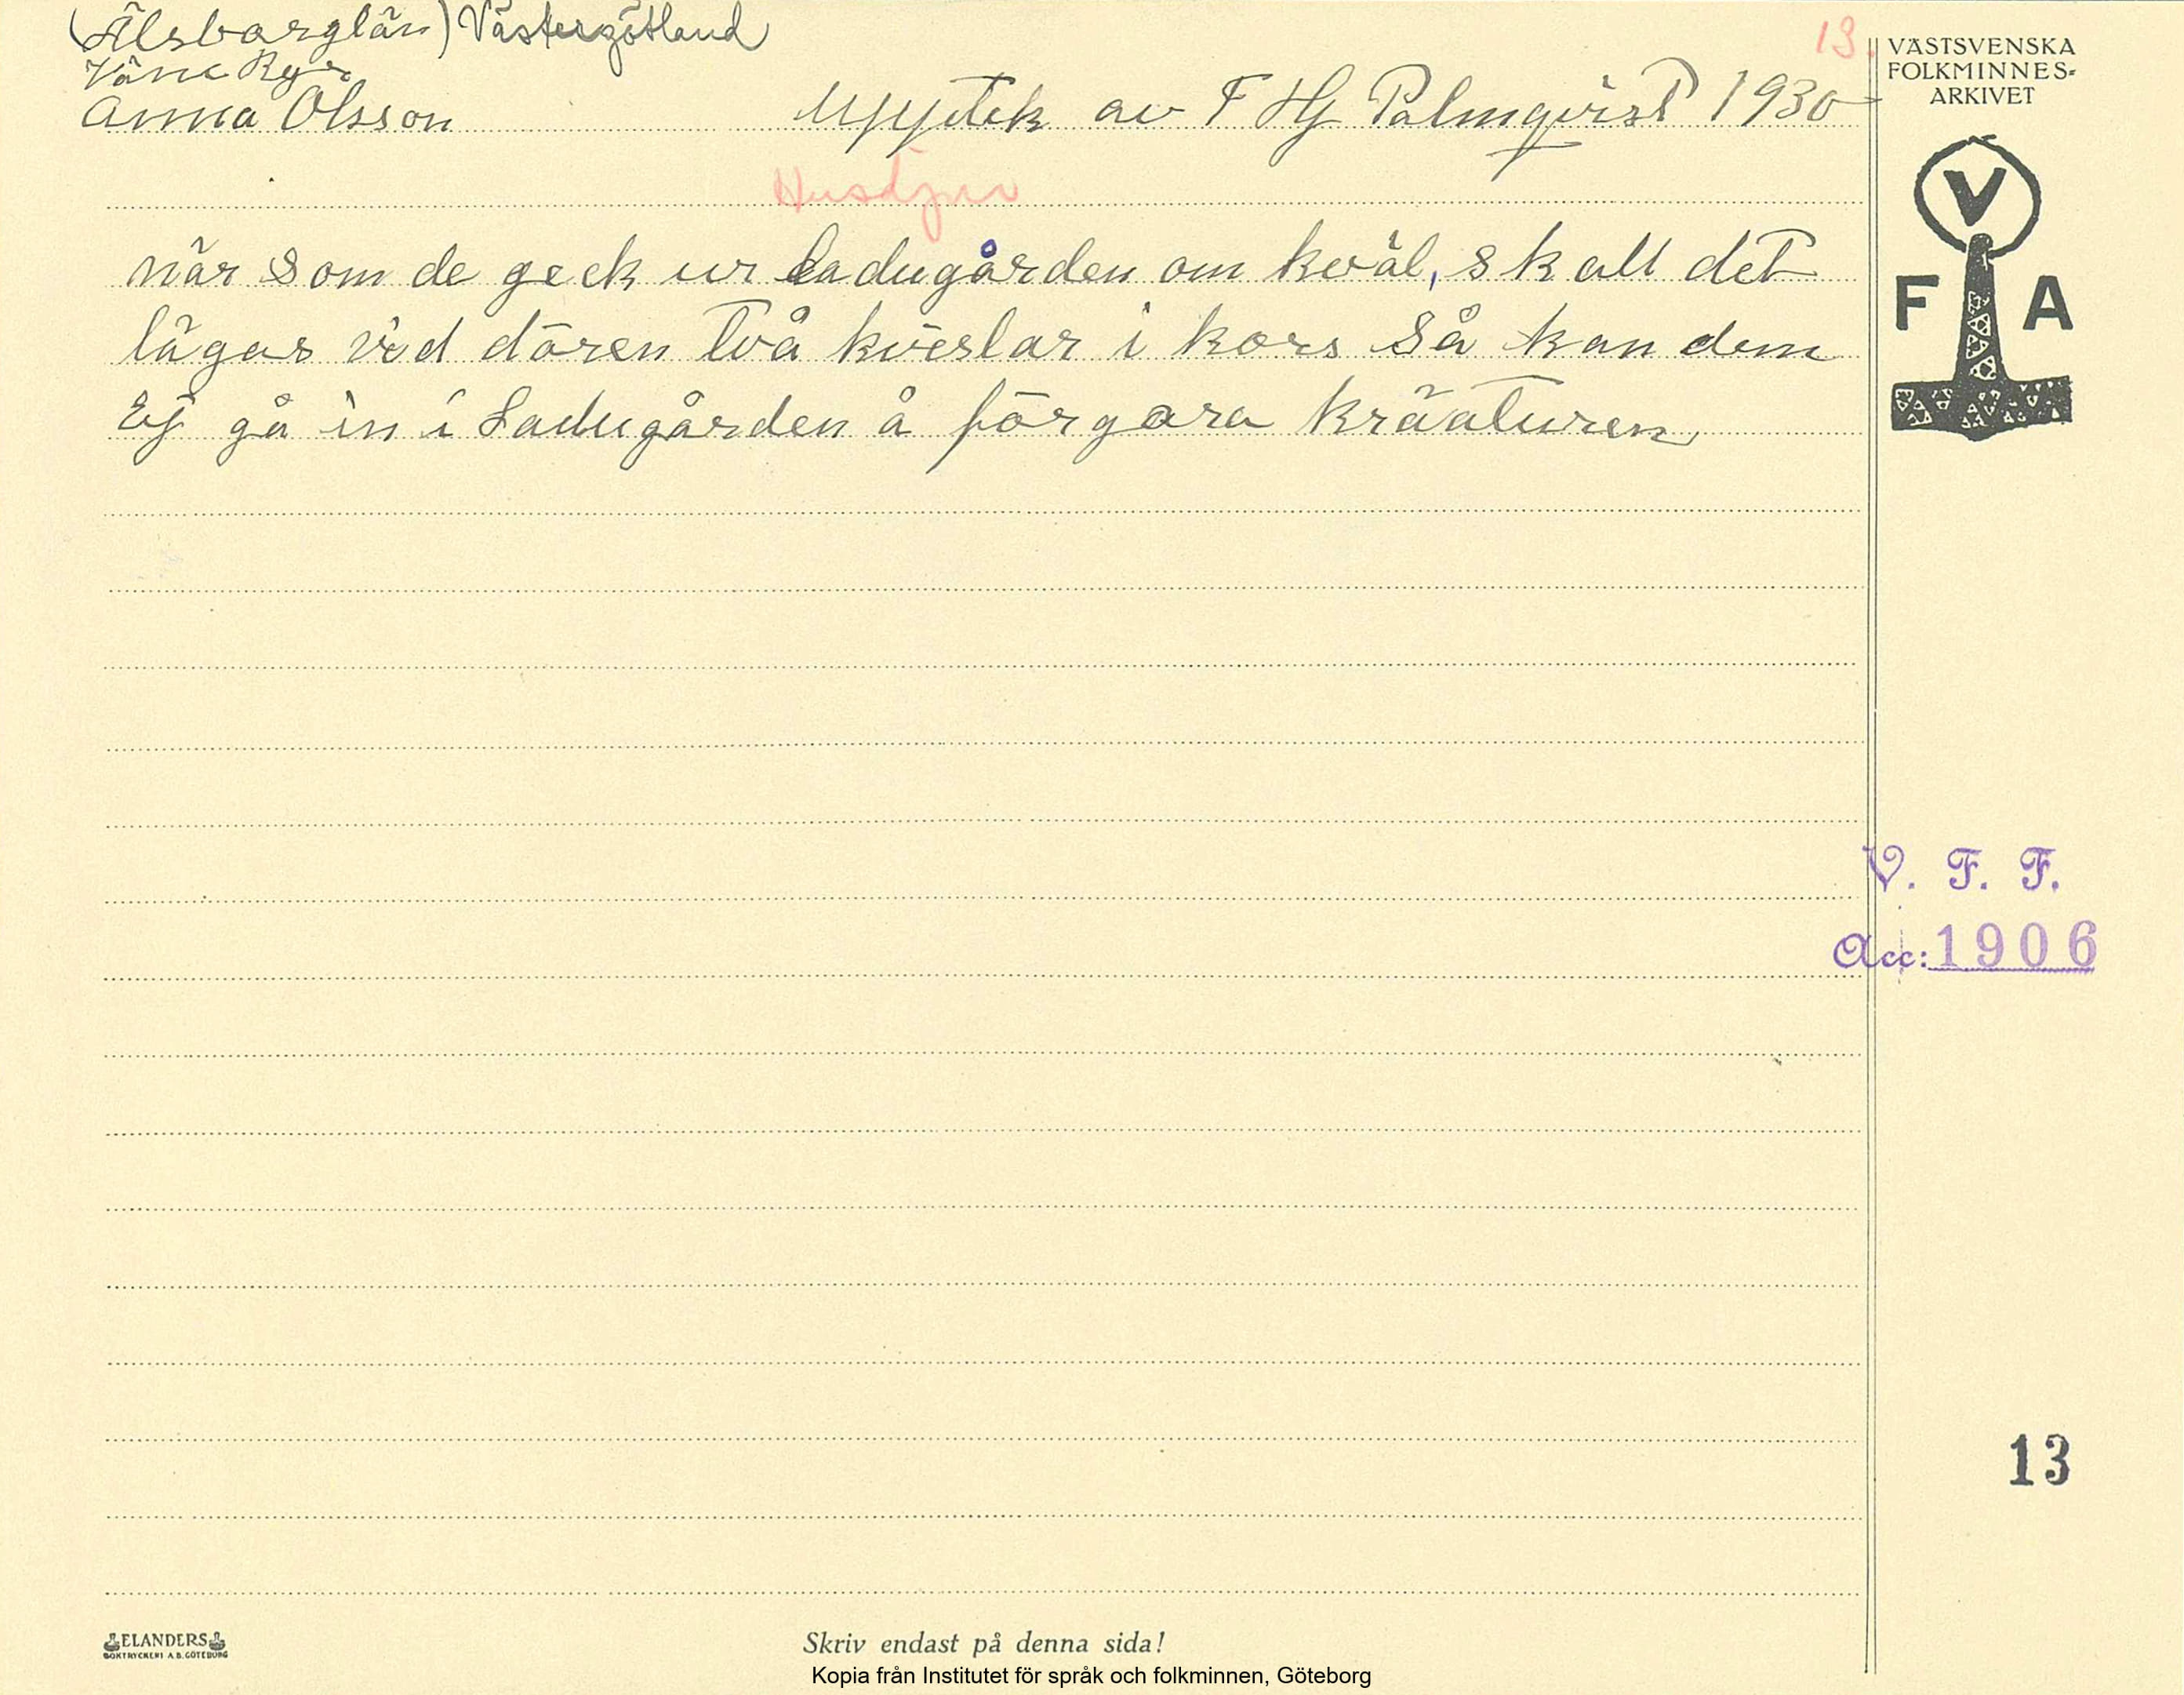 (Älsborglän) Västergötland
Väne Ryr
Anna Olsson
Upptek av F Hj Palmqvist 1930
13.
VÄSTSVENSKA
FOLKMINNES-
ARKIVET
V
F A
Husdjur
när som de geck ur Ladugården om kväl, skall det
lägas vid dören två kvèslar i kors Så kan dem
Ej gå in i Ladugården å förgara kräaturen
V. F. F.
Acc: 1906
13
ELANDERS
BOKTRYCKERI A.B. GÖTEBORG
Skriv endast på denna sida!
Kopia från Institutet för språk och folkminnen, Göteborg